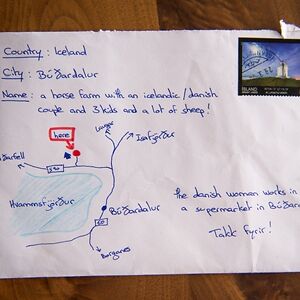 Country : Iceland
City : Búðardalur
Name : a horse farm with an icelandic/danish
couple and 3 kids and a lot of sheep!
ÍSLAND
here
Laugar
Ísafjörður
Hvammsfjörður
Búðardalur
60
Borganes
the danish woman works in
a supermarket in Búðar
Takk fyrir!